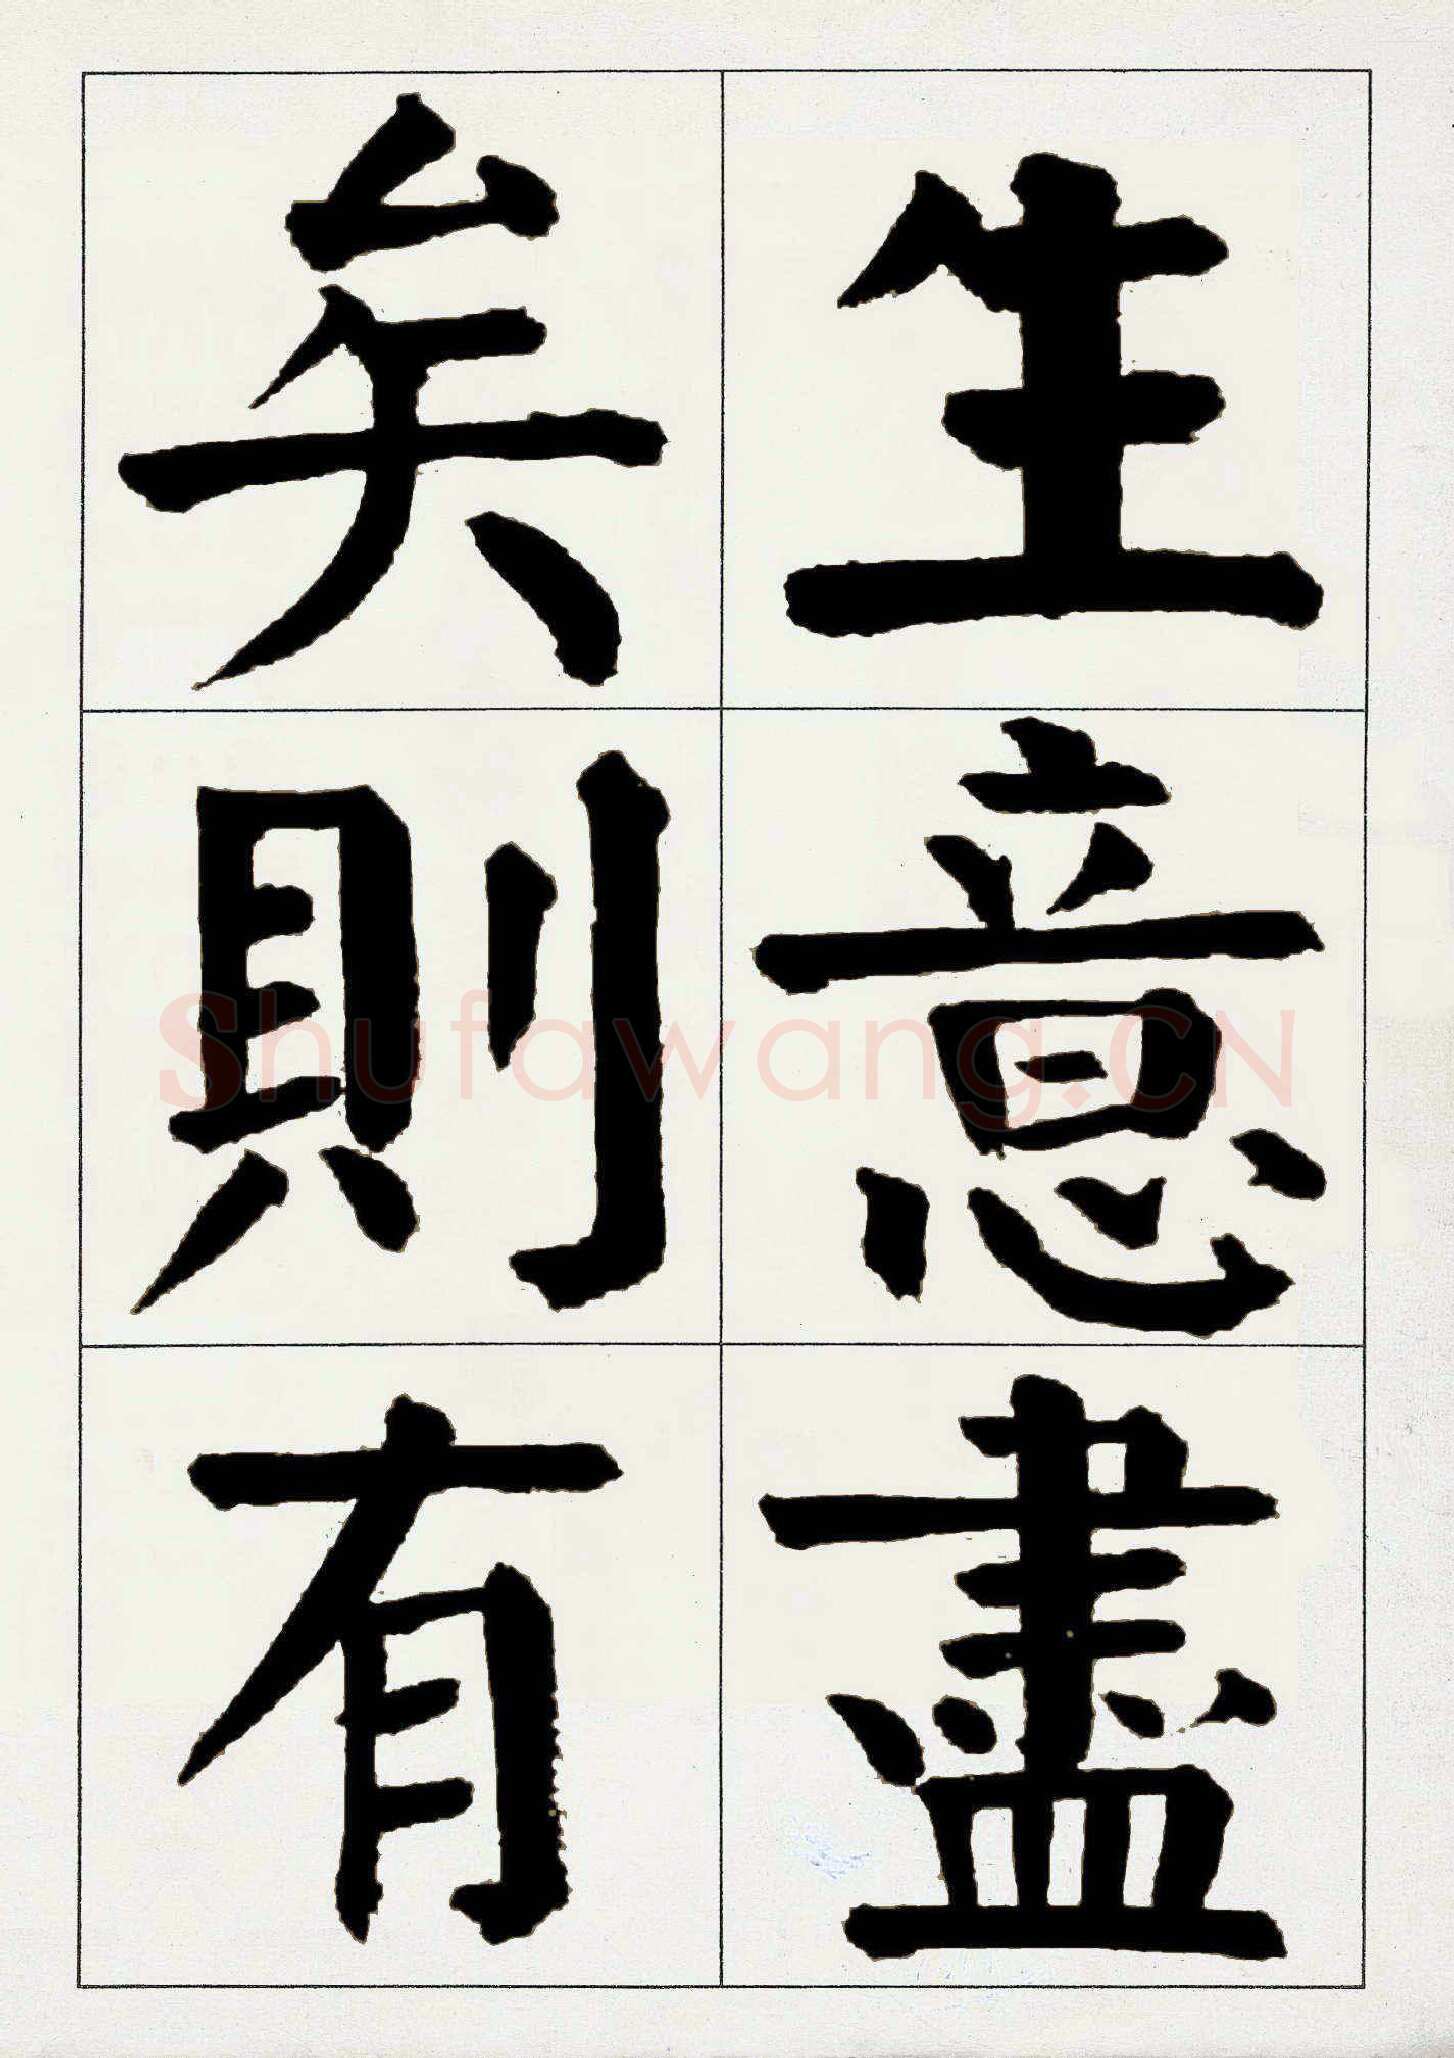 生意盡
矣則有
Shufawang.CN